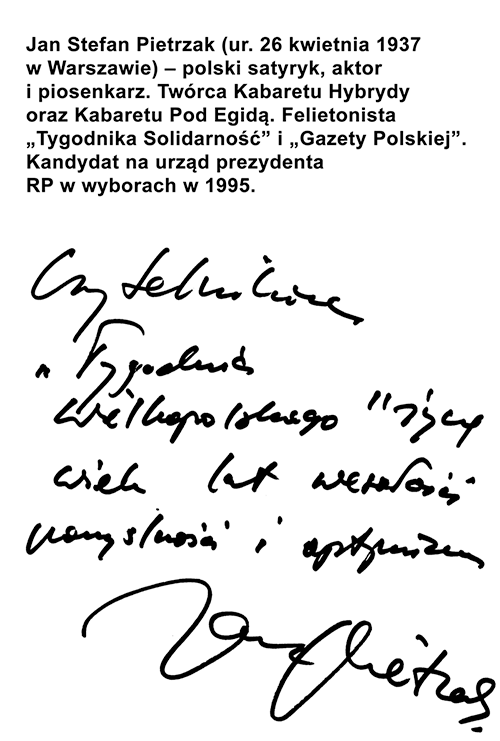 Jan Stefan Pietrzak (ur. 26 kwietnia 1937
w Warszawie) – polski satyryk, aktor
i piosenkarz. Twórca Kabaretu Hybrydy
oraz Kabaretu Pod Egidą. Felietonista
„Tygodnika Solidarność” i „Gazety Polskiej”.
Kandydat na urząd prezydenta
RP w wyborach w 1995.
Czytelnikom
„Tygodnika
Wielkopolskiego” życzę
wielu lat wesołości
pomyślności i optymizmu
Jan Pietrzak